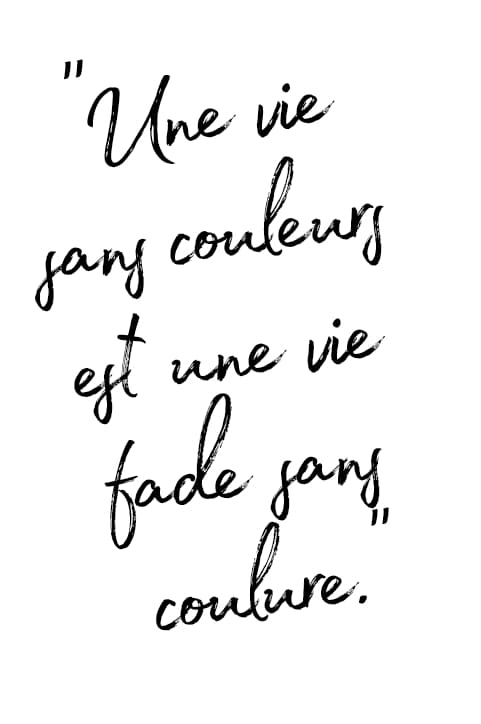 "Une vie
sans couleurs
est une vie
fade sans
coulure."